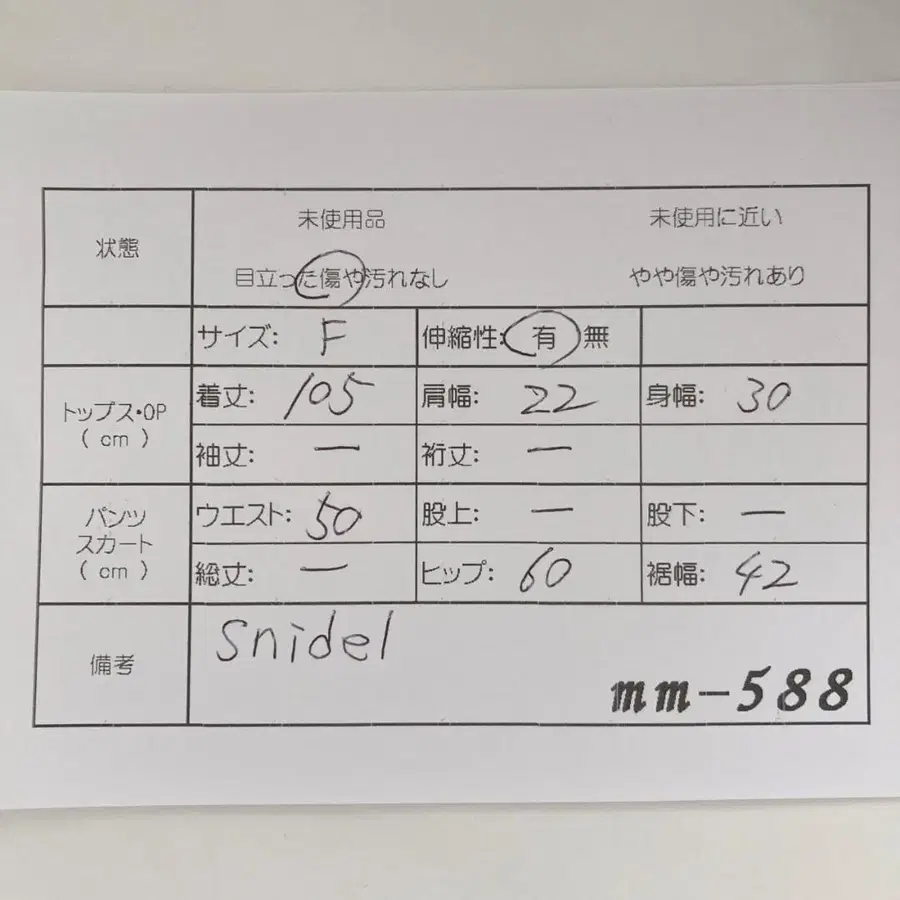 状態
未使用品 未使用に近い
目立った傷や汚れなし やや傷や汚れあり
サイズ: F 伸縮性: 有 無
トップス・OP
( cm )
着丈: 105 肩幅: 22 身幅: 30
袖丈: ー 裄丈: ー
パンツ
スカート
( cm )
ウエスト: 50 股上: ー 股下: ー
総丈: ー ヒップ: 60 裾幅: 42
備考
snidel
mm-588